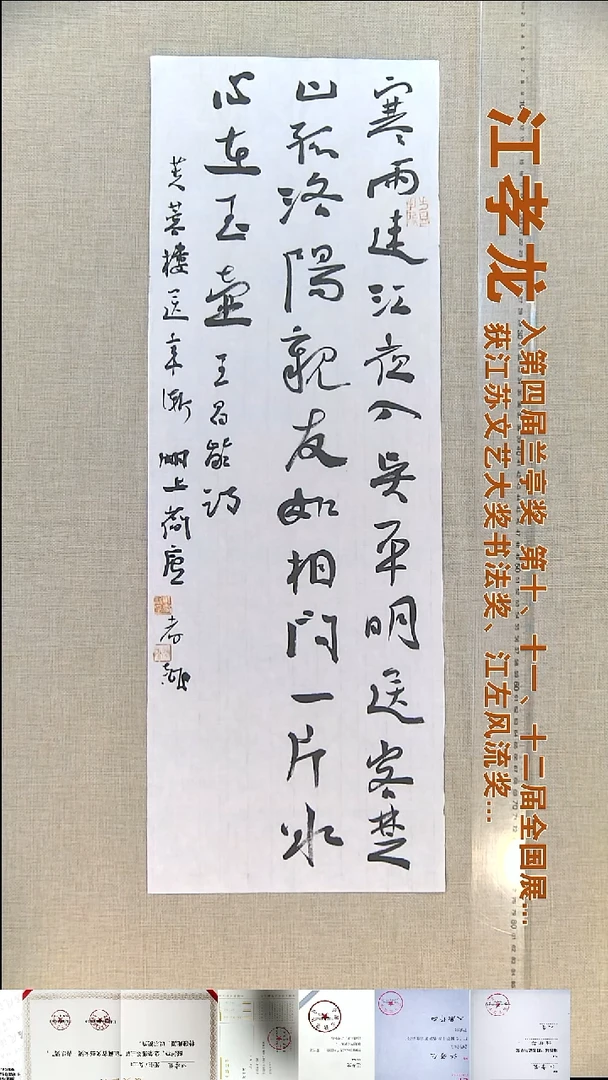 江孝龙
入第四届兰亭奖 第十、十一、十二届全国展...
获江苏文艺大奖书法奖、江左风流奖...
寒雨連江夜入吳平明送客楚
山孤洛陽親友如相問一片冰
心在玉壺 王昌齡詩
芙蓉樓送辛漸 上 廬 孝龍